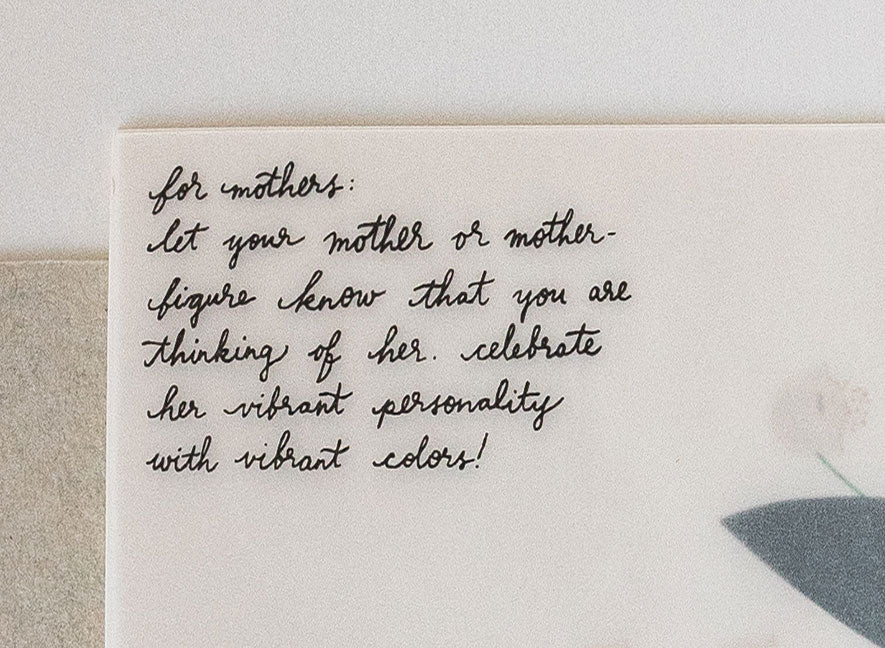 for mothers:
let your mother or mother-
figure know that you are
thinking of her. celebrate
her vibrant personality
with vibrant colors!